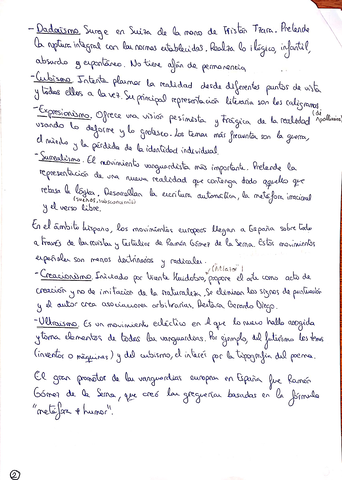 - Dadaísmo. Surge en Suiza de la mano de Tristán Tzara. Pretende
la ruptura integral con las normas establecidas. Realza lo ilógico, infantil,
absurdo y espontáneo. No tiene afán de permanencia.
- Cubismo. Intenta plasmar la realidad desde diferentes puntos de vista
y todos ellos a la vez. Su principal representación literaria son los caligramas
(de Apollinaire)
- Expresionismo. Ofrece una visión pesimista y trágica de la realidad
usando lo deforme y lo grotesco. Los temas más frecuentes son la guerra,
el miedo y la pérdida de la identidad individual.
- Surrealismo. El movimiento vanguardista más importante. Pretende la
representación de una nueva realidad que contenga todo aquello que
rebasa la lógica. Desarrollan la escritura automática, la metáfora irracional
(sueños, subconsciente)
y el verso libre.
En el ámbito hispano, los movimientos europeos llegan a España sobre todo
a través de las revistas y tertulias de Ramón Gómez de la Serna. Estos movimientos
españoles son menos doctrinarios y radicales.
- Creacionismo. Iniciado por Vicente Huidobro, propone el arte como acto de
creación y no de imitación de la naturaleza. Se eliminan los signos de puntuación
y el autor crea asociaciones arbitrarias. Destaca Gerardo Diego.
- Ultraísmo. Es un movimiento ecléctico en el que lo nuevo halla acogida
y toma elementos de todas las vanguardias. Por ejemplo, del futurismo los temas
(inventos o máquinas) y del cubismo, el interés por la tipografía del poema.
El gran promotor de las vanguardias europeas en España fue Ramón
Gómez de la Serna, que creó las greguerías basadas en la fórmula
"metáfora + humor".
2